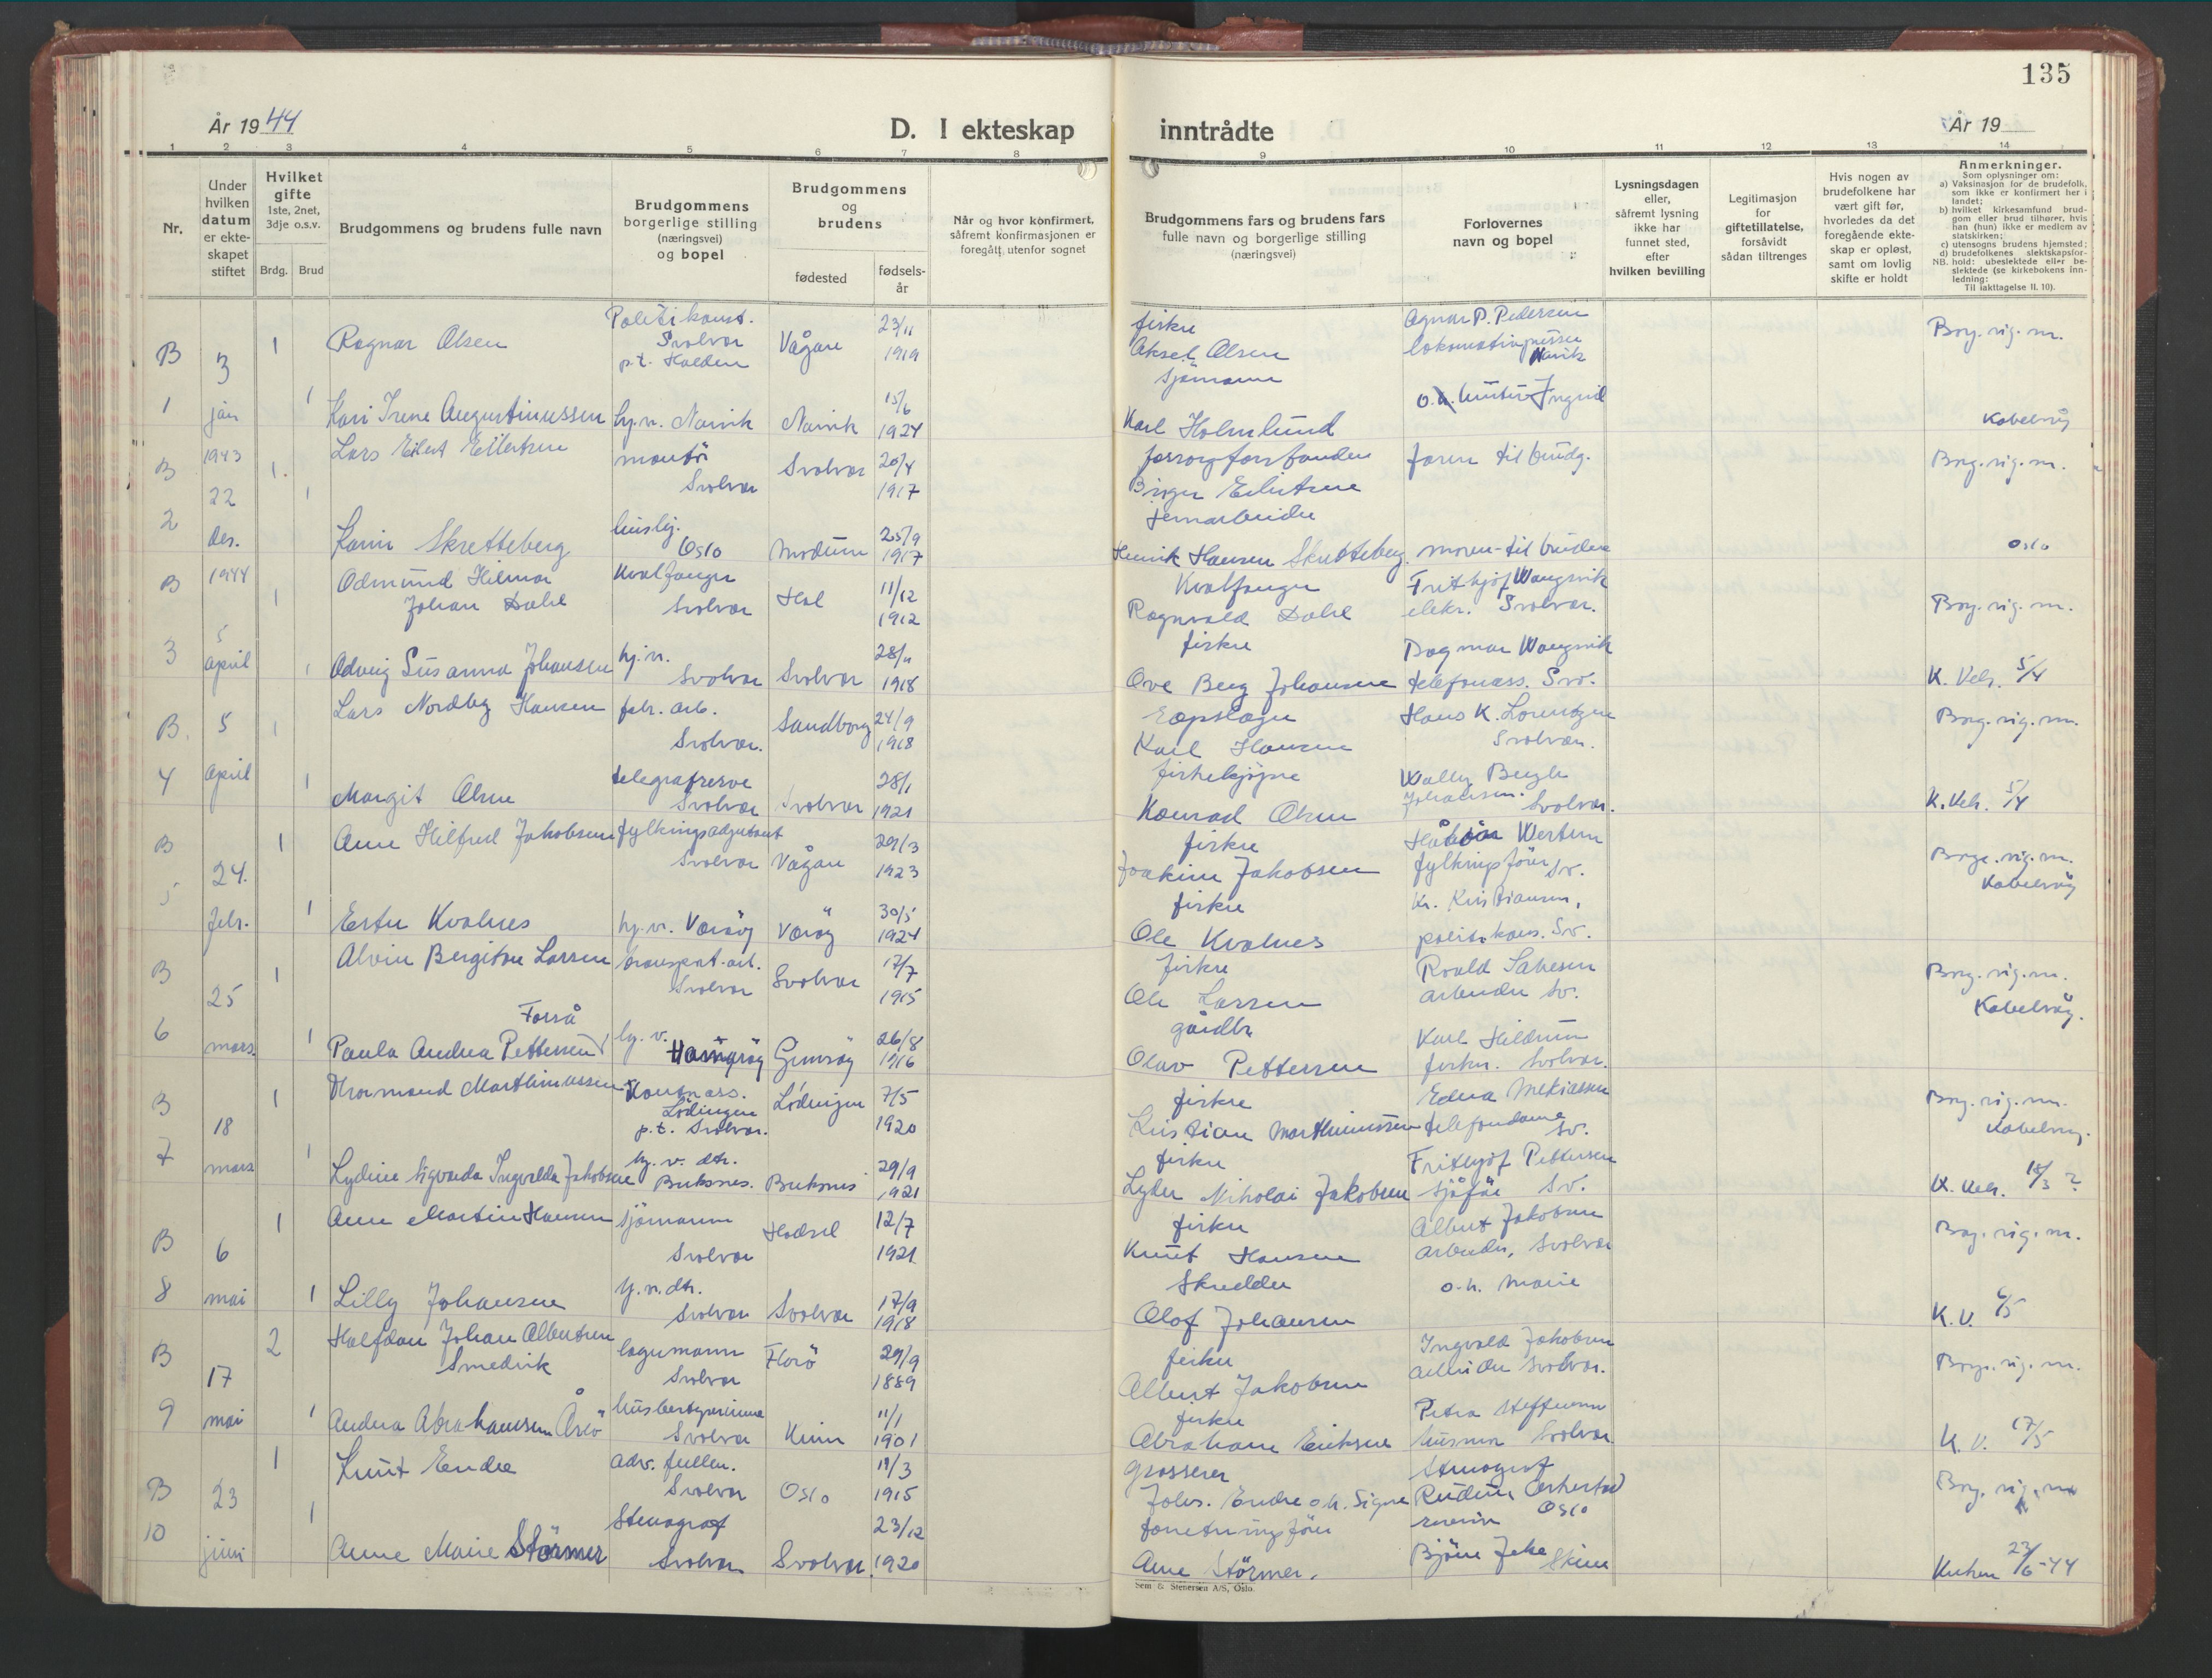 135
År 1944
D. I ekteskap inntrådte
År 19
1 2 3 4 5 6 7 8 9 10 11 12 13 14
Nr.
Under hvilken datum er ekteskapet stiftet
Hvilket gifte
1ste, 2net, 3dje o.s.v.
Brdg. Brud
Brudgommens og brudens fulle navn
Brudgommens borgerlige stilling (næringsvei) og bopel
Brudgommens og brudens
fødested
fødselsår
Når og hvor konfirmert, såfremt konfirmasjonen er foregått utenfor sognet
Brudgommens fars og brudens fars fulle navn og borgerlige stilling (næringsvei)
Forlovernes navn og bopel
Lysningsdagen eller, såfremt lysning ikke har funnet sted, efter hvilken bevilling
Legitimasjon for giftetillatelse, forsåvidt sådan tiltrenges
Hvis nogen av brudefolkene har vært gift før, hvorledes da det foregående ekteskap er opløst, samt om lovlig skifte er holdt
Anmerkninger.
Som oplysninger om:
a) Vaksinasjon for de brudefolk, som ikke er konfirmert her i landet;
b) hvilket kirkesamfund brudgom eller brud tilhører, hvis han (hun) ikke er medlem av statskirken;
c) utensogns brudens hjemsted;
d) brudefolkenes slektskapsforhold: ubeslektede eller beslektede (se kirkebokens innledning:
NB. Til iakttagelse II. 10).
B 1
3 jan
1
Ragnar Olsen
Politikonst. Svolvær p.t. Halden
Vågan
23/11 1919
fisker
Aksel Olsen
sjømann
Agnar P. Pedersen
Narvik
Borg. vig. m.
1
Kari Irene Augustinussen
hj.v. Narvik
Narvik
15/6 1924
Karl Holmlund
Ingrid
Kabelvåg
B 2
1943 22 des.
1
Lars Eilert Eilertsen
montør Svolvær
Svolvær
20/4 1917
Birger Eilertsen
jernarbeider
faren til brudg.
Borg. vig. m.
1
Karin Skretteberg
huslig. Oslo
Modum
25/9 1917
Henrik Hansen Skretteberg
moren til bruden
Oslo
B 3
1944 5 april
1
Odmund Hilmar Johan Dahl
Kvalfanger Svolvær
Hol
11/12 1912
Kvalfanger
Ragnvald Dahl
fisker
Frithjof Wangsvik
elekr. Svolvær.
Borg. vig. m.
1
Odveig Susanna Johansen
hj.v. Svolvær
Svolvær
28/11 1918
Ove Berg Johansen
Dagmar Wangsvik
telefonass. Svo.
K. Velv. 5/4
B. 4
5 april
1
Lars Nordby Hansen
fabr. arb. Svolvær.
Sandborg
24/9 1918
Karl Hansen
Hans K. Lorentzen
Svolvær.
Borg. vig. m.
1
Margit Olsen
telegrafreserve Svolvær
Svolvær
28/1 1921
Konrad Olsen
Wally Bergh Johansen. Svolvær.
K. Velv. 5/4
B 5
24. febr.
1
Arne Hilfred Jakobsen
fylkingsadjutant Svolvær
Vågan
29/3 1923
fisker
Joakim Jakobsen
Håkon Westum
fylkingsfører, Sv.
Borg. vig. m.
Kabelvåg
1
Ester Kvalnes
hj.v. Værøy
Værøy
30/5 1924
fisker
Ole Kvalnes
Kr. Kristiansen,
politikons. Sv.
B 6
25 mars.
1
Alvin Bergiton Larsen
transport.arb. Svolvær
Svolvær
17/7 1915
fisker
Ole Larsen
Roald Salvesen
arbeider Sv.
Borg. vig. m.
Kabelvåg.
Forså
1
Paula Andrea Pettersen
hj. v. Hamarøy
Gimsøy
26/8 1916
gårdbr
Olav Pettersen
Karl Hildrum
fisker. Svolvær.
B 7
18 mars
1
Thormond Marthinussen
Kontorass. Lødingen p.t. Svolvær.
Lødingen
7/5 1920
fisker
Kristian Marthinussen
Edna Mekiassen
telefondame Sv.
Borg. vig. m.
Kabelvåg.
1
Lydine Sigvarda Ingvalda Jakobsen
hj. v. dtr. Buksnes.
Buksnes
29/9 1921
fisker
Lyder Nikolai Jakobsen
Frithjof Pettersen
sjåfør Sv.
K. Velv. 18/3 ?
B 8
6 mai
1
Arne Martin Hansen
sjømann Svolvær
Hadsel
12/7 1921
fisker
Knut Hansen
Albert Jakobsen
arbeider, Svolvær
Borg. vig. m.
1
Lilly Johansen
hj.v.dtr. Svolvær
Svolvær
17/9 1918
Skredder
Olof Johansen
o. h. Marie
K. V. 6/5
B 9
17 mai
2
Halfdan Johan Albertsen Smedvik
lagermann Svolvær
Florø
29/9 1889
fisker
Albert Jakobsen
Ingvald Jakobsen
arbeider Svolvær.
Borg. vig. m.
1
Andrea Abrahamsen Årø
husbestyrerinne Svolvær
Kinn
11/1 1901
fisker
Abraham Eriksen
Petra Steffensen
husmor Svolvær
K. V. 17/5
B 10
23 juni
1
Knut Endre
adv. fullm. Svolvær
Oslo
19/3 1915
grosserer
Johs. Endre o.h. Signe
Stenograf
Oslo
Borg. vig. m
1
Anne Marie Størmer
Stenograf Svolvær
Svolvær.
23/12 1920
forretningsfører
Arne Størmer.
Kirken 23/6-44
Sem & Stenersen A/S, Oslo.